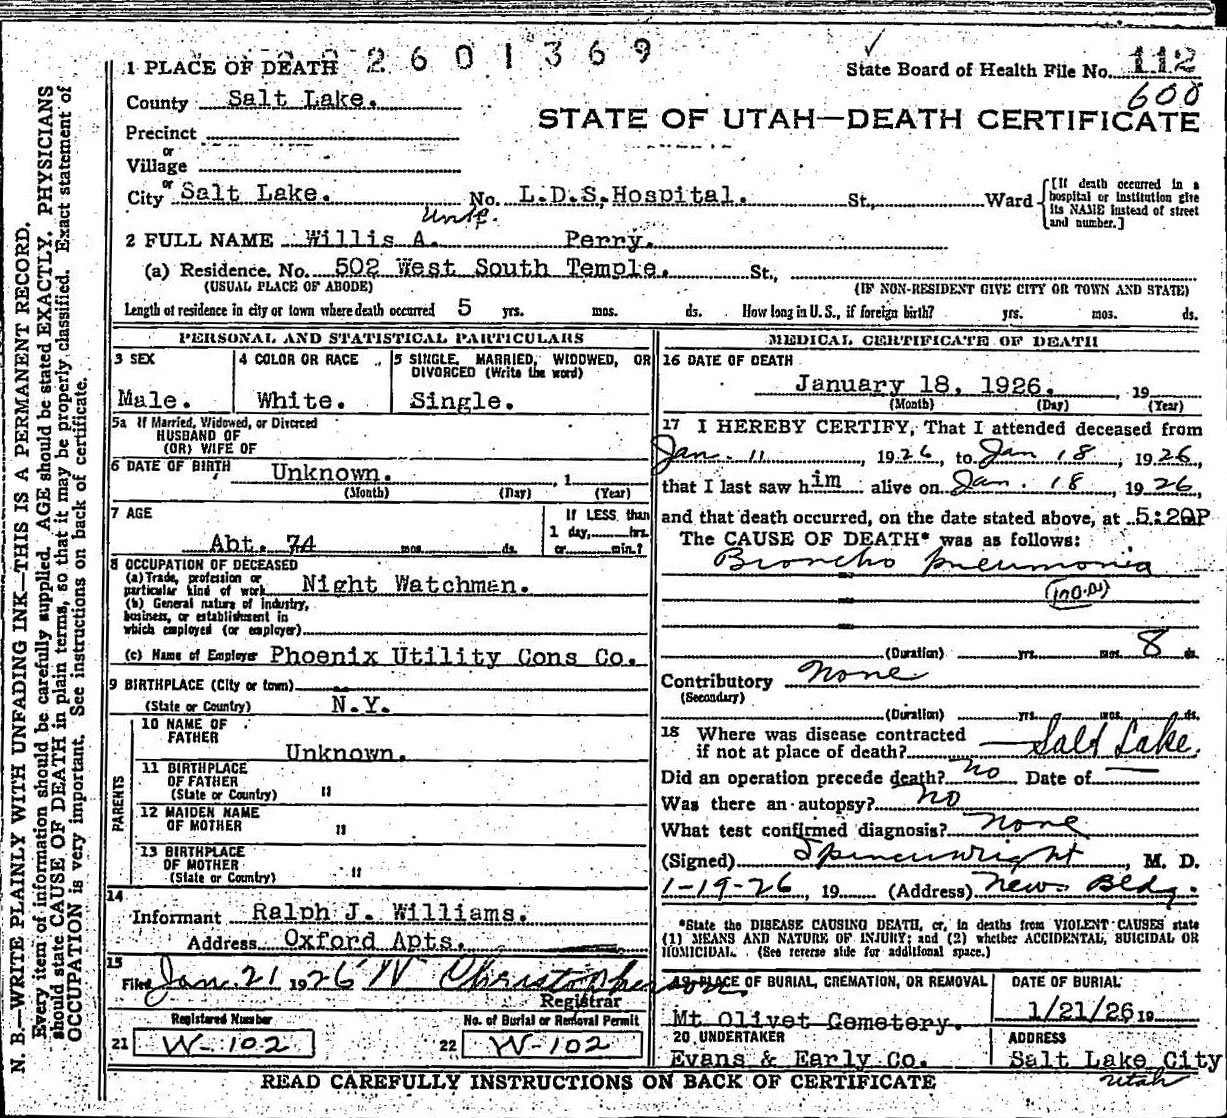 2601369
1 PLACE OF DEATH
State Board of Health File No. 112
600
County Salt Lake.
STATE OF UTAH—DEATH CERTIFICATE
Precinct
or
Village
or
City Salt Lake. No. L.D.S.Hospital. St., Ward
[If death occurred in a hospital or institution give its NAME instead of street and number.]
2 FULL NAME Willis A. Perry.
(a) Residence. No. 502 West South Temple. St.,
(USUAL PLACE OF ABODE) (IF NON-RESIDENT GIVE CITY OR TOWN AND STATE)
Length of residence in city or town where death occurred 5 yrs. mos. ds. How long in U. S., if foreign birth? yrs. mos. ds.
PERSONAL AND STATISTICAL PARTICULARS
3 SEX
Male.
4 COLOR OR RACE
White.
5 SINGLE, MARRIED, WIDOWED, OR
DIVORCED (Write the word)
Single.
5a If Married, Widowed, or Divorced
HUSBAND OF
(OR) WIFE OF
6 DATE OF BIRTH Unknown. , 1
(Month) (Day) (Year)
7 AGE
Abt. 74 mos. ds.
If LESS than
1 day, hrs.
or min.?
8 OCCUPATION OF DECEASED
(a) Trade, profession or
particular kind of work Night Watchman.
(b) General nature of industry,
business, or establishment in
which employed (or employer)
(c) Name of Employer Phoenix Utility Cons Co.
9 BIRTHPLACE (City or town)
(State or Country) N.Y.
PARENTS
10 NAME OF
FATHER
Unknown.
11 BIRTHPLACE
OF FATHER
(State or Country) "
12 MAIDEN NAME
OF MOTHER "
13 BIRTHPLACE
OF MOTHER
(State or Country) "
14
Informant Ralph J. Williams.
Address Oxford Apts.
15
Filed Jan. 21 1926 W Christopherson
Registrar
Registered Number
21 W-102
No. of Burial or Removal Permit
22 W-102
MEDICAL CERTIFICATE OF DEATH
16 DATE OF DEATH
January 18, 1926. 19
(Month) (Day) (Year)
17 I HEREBY CERTIFY, That I attended deceased from
Jan. 11, 1926, to Jan 18, 1926,
that I last saw him alive on Jan. 18, 1926,
and that death occurred, on the date stated above, at 5:20P
The CAUSE OF DEATH* was as follows:
Broncho pneumonia
(Duration) yrs. mos. 8 ds.
Contributory None
(Secondary)
(Duration) yrs. mos. ds.
18 Where was disease contracted
if not at place of death? Salt Lake.
Did an operation precede death? no Date of —
Was there an autopsy? no
What test confirmed diagnosis? none
(Signed) Spencer Wright, M. D.
1-19-26, 19 (Address) News Bldg.
*State the DISEASE CAUSING DEATH, or, in deaths from VIOLENT CAUSES state
(1) MEANS AND NATURE OF INJURY; and (2) whether ACCIDENTAL, SUICIDAL OR
HOMICIDAL. (See reverse side for additional space.)
19 PLACE OF BURIAL, CREMATION, OR REMOVAL
Mt Olivet Cemetery.
DATE OF BURIAL
1/21/26 19
20 UNDERTAKER
Evans & Early Co.
ADDRESS
Salt Lake City
Utah
READ CAREFULLY INSTRUCTIONS ON BACK OF CERTIFICATE
N. B.—WRITE PLAINLY WITH UNFADING INK—THIS IS A PERMANENT RECORD.
Every item of information should be carefully supplied. AGE should be stated EXACTLY. PHYSICIANS
should state CAUSE OF DEATH in plain terms, so that it may be properly classified. Exact statement of
OCCUPATION is very important. See instructions on back of certificate.